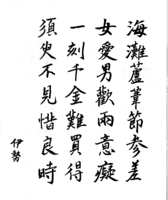 海灘蘆葦節参差
女愛男歡兩意癡
一刻千金難買得
須臾不見惜良時
伊勢